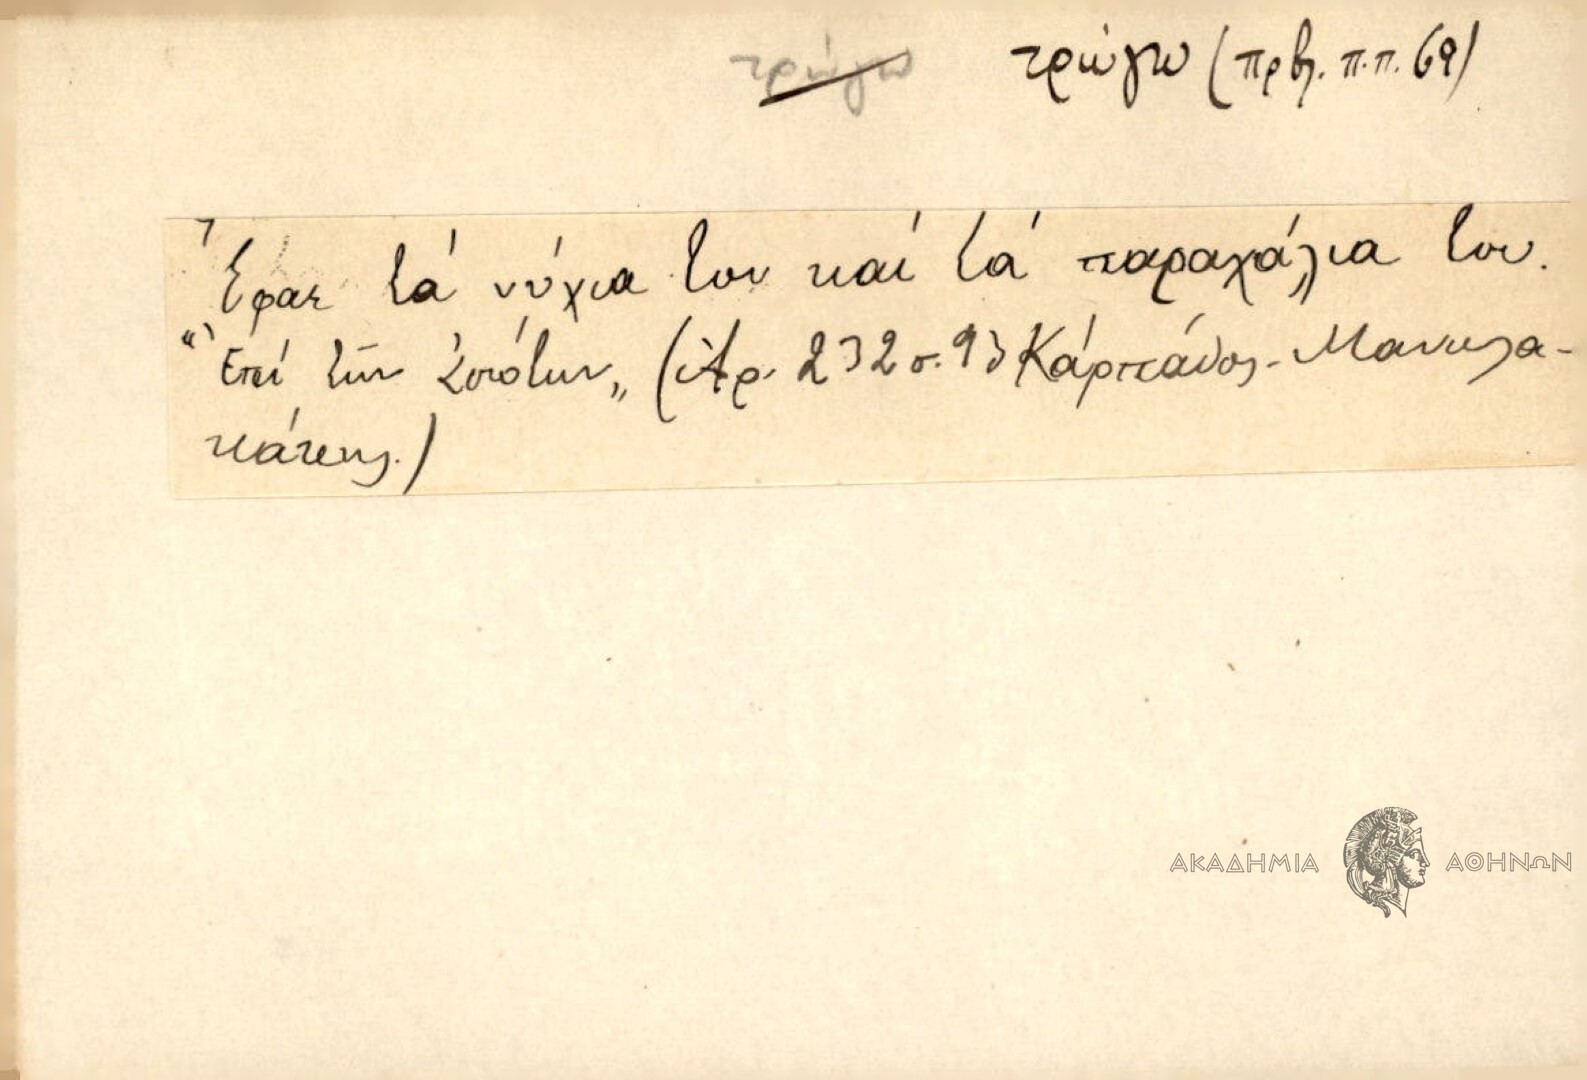 τρώγω τρώγω (πρβλ. π.π. 69)
Ἔφαε τά νύχια του καί τά παραχάλια του.
"Ἐπί τῶν" (Ἀρ. 232 σ. 93 Κάρπαθος - Μανωλα-
κάκης.)
ΑΚΑΔΗΜΙΑ ΑΘΗΝΩΝ